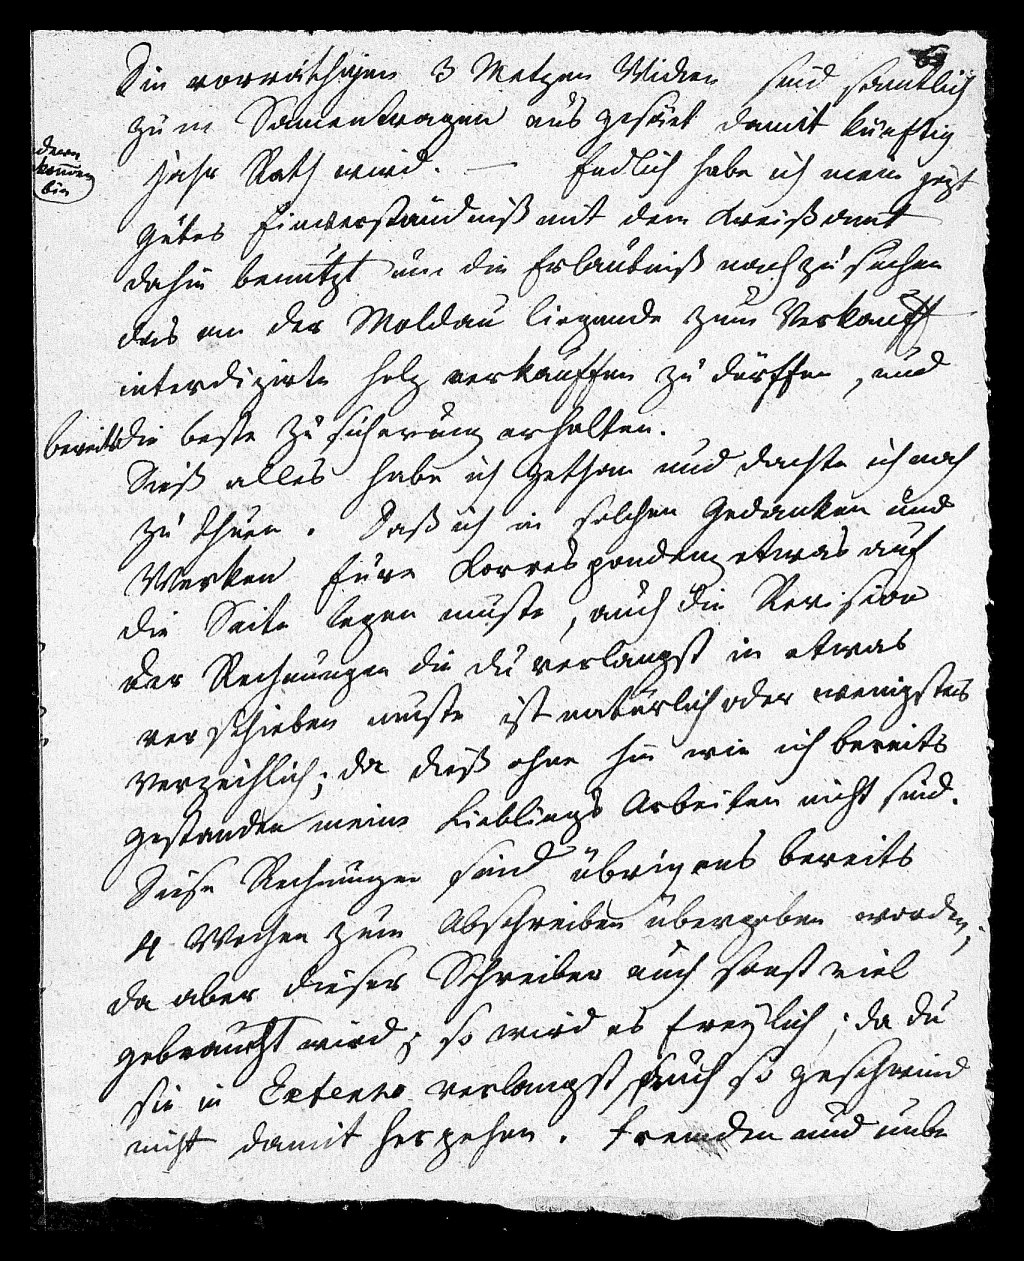 Die vorräthigen 3 Metzen Wicken sind samtlich
zum Samentragen aus gesäet damit künftig
Jahr Rath wird. — Endlich habe ich mein jezt
gutes Einverständniß mit dem Kreißamt
dahin benutzt um die Erlaubniß nach zu suchen
das an der Moldau liegende zum Verkauff
interdizirte Holz verkauffen zu dürffen, und
bereits die beste Zusicherung erhalten.
Dieß alles habe ich gethan und dachte ich noch
zu thuen. Daß ich in solchen Gedanken und
Werken Eure Korrespondenz etwas auf
die Seite legen muste, auch die Revision
der Rechnungen die du verlangst in etwas
verschieben muste ist natürlich oder wenigstens
verzeihlich; da dieß ohne hin wie ich bereits
gestanden meine Lieblings Arbeiten nicht sind.
Diese Rechnungen sind übrigens bereits
4 Wochen zum Abschreiben übergeben worden,
da aber dieser Schreiber auch sonst viel
gebraucht wird; so wird es freylich; da du
sie in Extenso verlangst, auch so geschwind
nicht damit hergehen. Fremden und unbe
kommen
bin
69